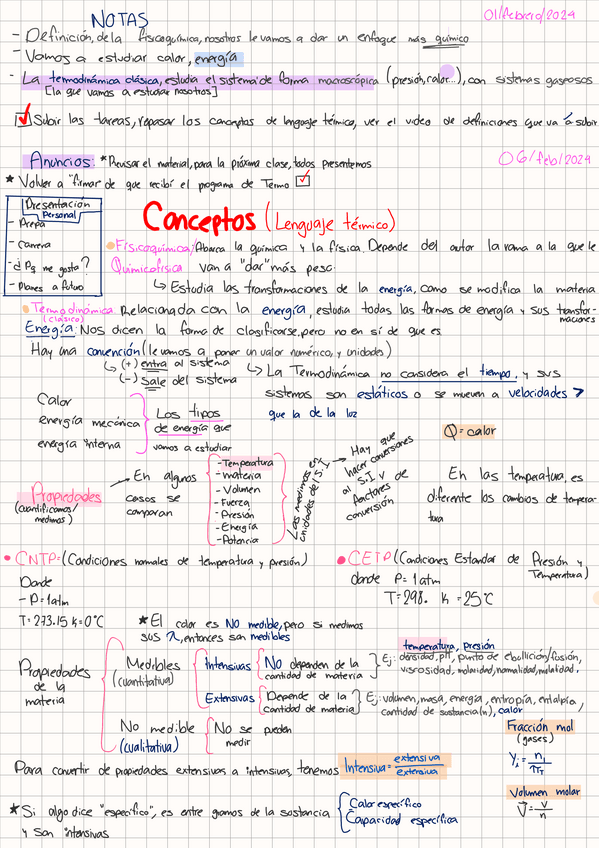 NOTAS
01/febrero/2024
- Definición, de la fisicoquímica, nosotros le vamos a dar un enfoque más químico
- Vamos a estudiar calor, energía
- La termodinámica clásica, estudia el sistema de forma macroscópica (presión, calor...), con sistemas gaseosos
[la que vamos a estudiar nosotros]
Subir las tareas, repasar los conceptos de lenguaje térmico, ver el video de definiciones que va a subir
Anuncios: *Revisar el material, para la próxima clase, todos presentemos
06/feb/2024
* Volver a "firmar de que recibí el programa de Termo
Presentación
Personal
- Prepa
- Carrera
- ¿Pq me gusta?
- Planes a futuro
Conceptos (Lenguaje térmico)
Fisicoquímica/Abarca la química y la física. Depende del autor la rama a la que le
Quimicofísica van a "dar" más peso.
↳ Estudia las transformaciones de la energía, como se modifica la materia
Termodinámica: Relacionada con la energía, estudia todas las formas de energía y sus transfor-
(clásica) maciones
Energía: Nos dicen la forma de clasificarse, pero no en sí de que es
Hay una convención (le vamos a poner un valor numérico, y unidades)
↳ (+) entra al sistema
(-) Sale del sistema
↳ La Termodinámica no considera el tiempo, y sus
sistemas son estáticos o se mueven a velocidades >
que la de la luz
Calor
energía mecánica
energía interna
Los tipos
de energía que
vamos a estudiar
Q = calor
Propiedades
(cuantificamos/
medimos)
En algunos
casos se
comparan
- Temperatura
- materia
- Volumen
- Fuerza
- Presión
- Energía
- Potencia
Las medimos en
unidades del S.I
Hay que
hacer conversiones
al S.I y de
factores
conversión
En las temperatura, es
diferente los cambios de tempera-
tura
• CNTP=(Condiciones normales de temperatura y presión)
Donde
- P=1atm
T=273.15 K=0°C
• CETP (Condiciones Estandar de Presión y
Temperatura)
donde P=1atm
T=298. K = 25°C
*El calor es NO medible, pero si medimos
sus λ, entonces son medibles
Propiedades
de la
materia
Medibles
(cuantitativa)
Intensivas
NO dependen de la
cantidad de materia
temperatura, presión
Ej: densidad, pH, punto de ebollición/fusión,
viscosidad, molaridad, normalidad, molalidad.
Extensivas
Depende de la
cantidad de materia
Ej: volumen, masa, energía, entropía, entalpía,
cantidad de sustancia(n), calor
No medible
(cualitativa)
No se pueden
medir
Fracción mol
(gases)
Yi = ni/nT
Para convertir de propiedades extensivas a intensivas, tenemos Intensiva = extensiva/extensiva
Volumen molar
V̄ = V/n
* Si algo dice "específico", es entre gramos de la sustancia
y son intensivas
Calor específico
Capacidad específica